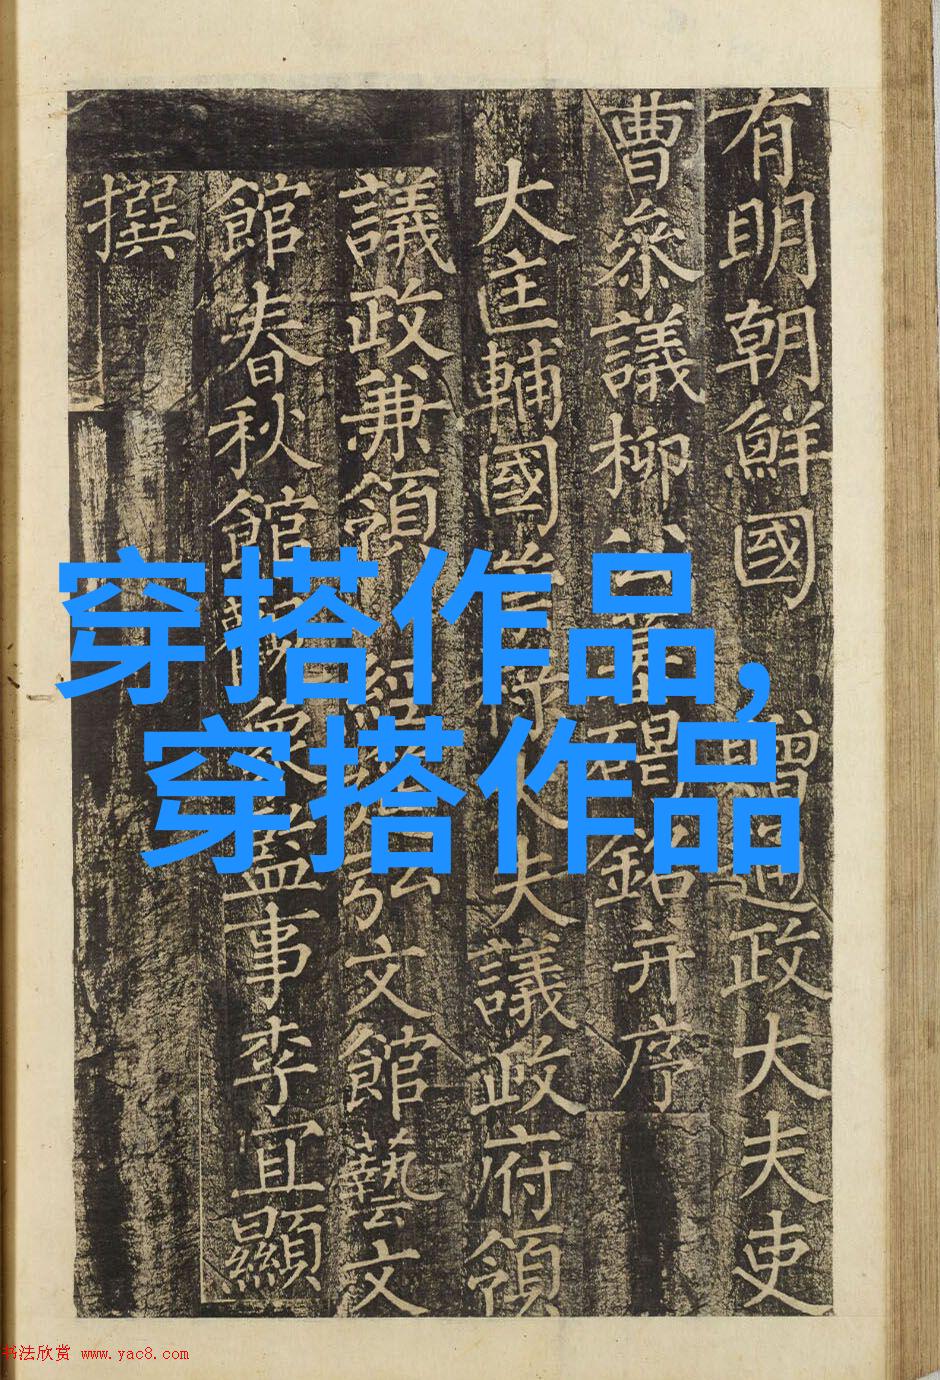 有明朝鮮國 贈通政大夫吏
曹參議柳公墓碣銘并序
大匡輔國崇祿大夫議政府領
議政兼領 經筵弘文館藝文
館春秋館觀象監事李宜顯
撰
穿搭作品,
穿搭作品
书法欣赏 www.yac8.com